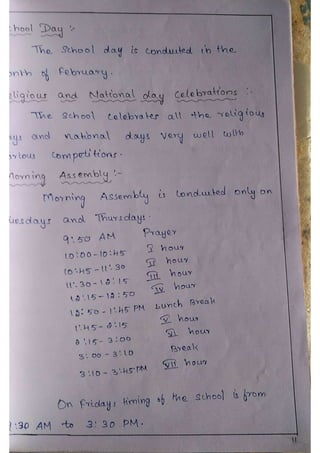 hool Day :-
The School day is conducted in the
onth of February.
eligious and National day Celebrations :-
The School Celebrates all the religious
ys and national days very well with
arious Competitions.
Morning Assembly :-
Morning Assembly is conducted only on
uesdays and Thursdays.
9:50 AM Prayer
10:00-10:45 I hour
10:45-11:30 II hour
11:30-12:15 III hour
12:15-12:50 IV hour
12:50-1:45 PM Lunch Break
1:45-2:15 V hour
2:15-3:00 VI hour
3:00-3:10 Break
3:10-3:45 PM VII hour
On Fridays timing of the School is from
:30 AM to 3:30 PM.
11